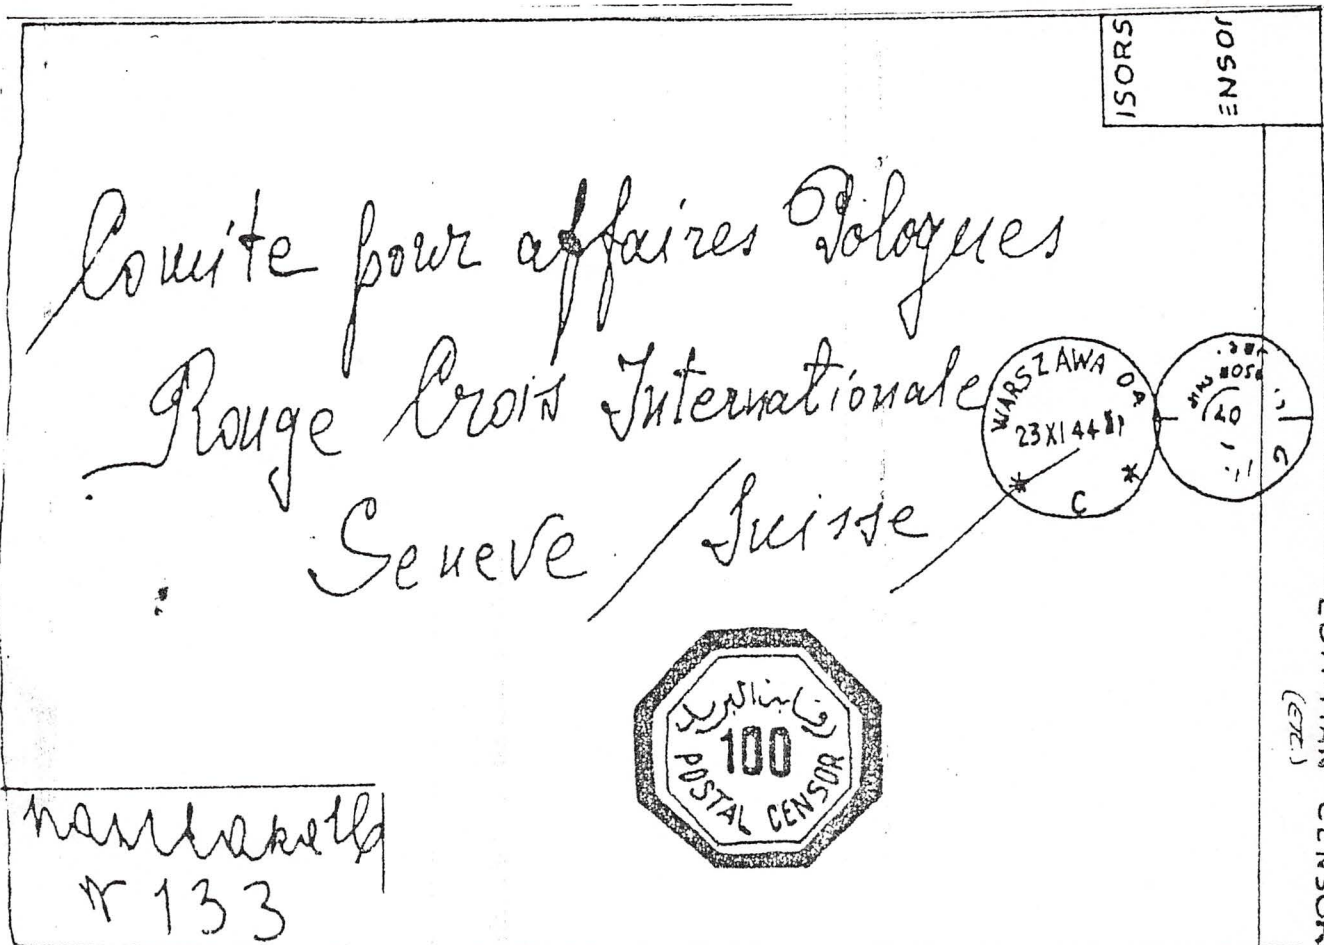 ISORS
ENSOR
Comite pour affaires Pologues
Rouge Croix Internationale
Geneve / Suisse /
WARSZAWA OA
23 XI 44
C
رقابة البريد
100
POSTAL CENSOR
CENSOR
№ 133